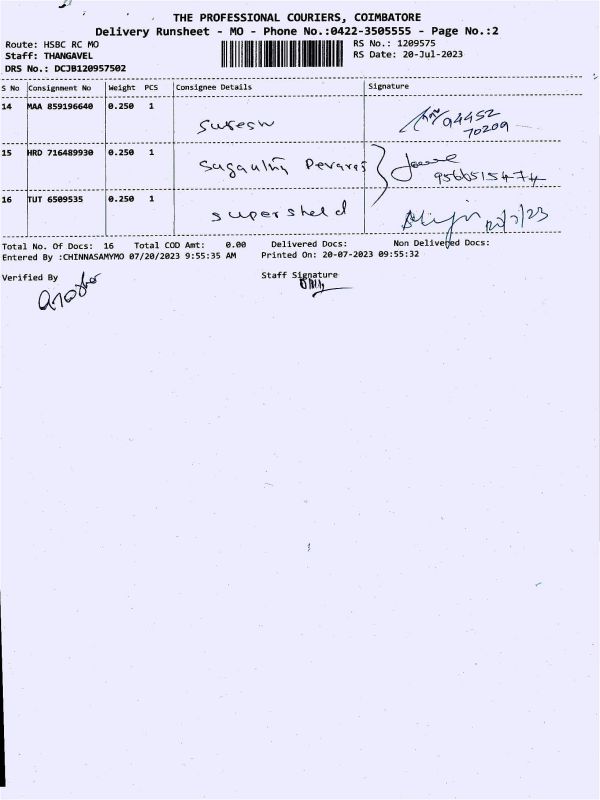 THE PROFESSIONAL COURIERS, COIMBATORE
Delivery Runsheet - MO - Phone No.:0422-3505555 - Page No.:2
Route: HSBC RC MO
Staff: THANGAVEL
DRS No.: DCJB120957502
RS No.: 1209575
RS Date: 20-Jul-2023
S No Consignment No Weight PCS Consignee Details Signature
14 MAA 859196640 0.250 1 Suresh 94452
70209
15 HRD 716489930 0.250 1
9566515474
16 TUT 6509535 0.250 1 supersheld
Total No. Of Docs: 16 Total COD Amt: 0.00 Delivered Docs: Non Delivered Docs:
Entered By :CHINNASAMYMO 07/20/2023 9:55:35 AM Printed On: 20-07-2023 09:55:32
Verified By Staff Signature